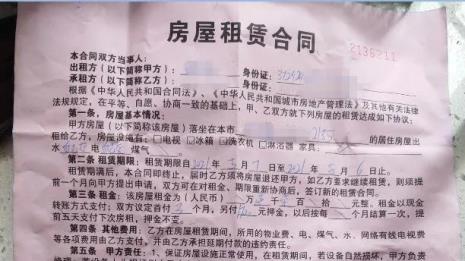 房屋租赁合同
2136211
本合同双方当事人:
出租方(以下简称甲方): 身份证:
承租方(以下简称乙方): 身份证:
根据《中华人民共和国合同法》、《中华人民共和国城市房地产管理法》及其他有关法律
法规规定,在平等、自愿、协商一致的基础上,甲、乙双方就下列房屋的租赁达成如下协议:
第一条、房屋基本情况:
甲方房屋(以下简称该房屋)坐落在本市 的居住房屋出
租给乙方,房屋设备有:□电视 □冰箱 □洗衣机 □淋浴器 家具:
水 电 煤气
第二条 租赁期限:租赁期限自2021年5月7日 2021年8月6日止。
租赁期满后,本合同即终止,届时乙方须将房屋退还甲方,如乙方要求继续租赁,则须提
前一个月向甲方提出申请,双方可在对租金、期限重新协商后,签订新的租赁合同。
第三条 租金:该房屋租金为(人民币) 万 千 百 拾 元整。租金以现金
转账方式支付;乙方设定首付 个月,另付 元押金,以后按每 个月结算一次,提
前五天支付下次房租,押金不变。
第四条 其他费用:乙方在房屋租赁期间,所用的物业费、电、煤气、水、网络有线电视费
等各项费用由乙方支付,并由乙方承担延期付款的违约责任。
第五条 甲方责任:1、保证房屋设施正常使用,在租赁期间,若设备自然损坏,甲方负